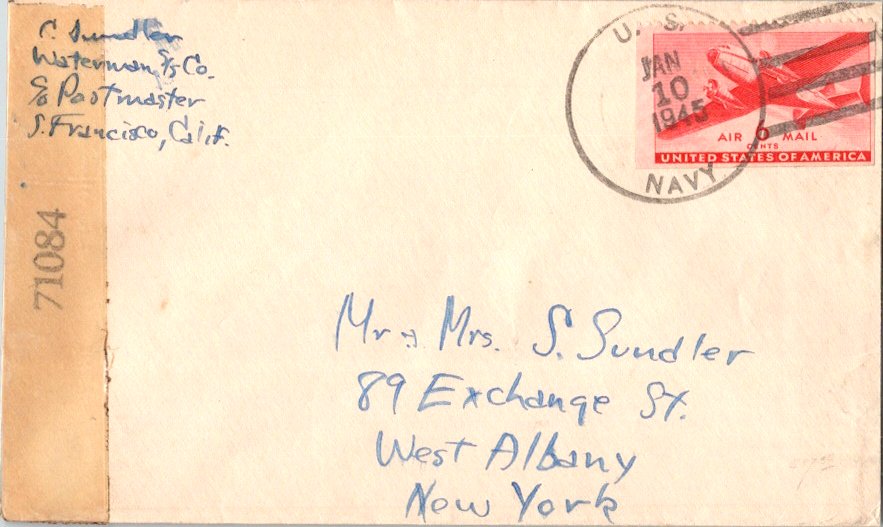 C. Sundler
Waterman S/S Co.
c/o Postmaster
S. Francisco, Calif.
U. S.
JAN
10
1945
NAVY
AIR 6 MAIL
CENTS
UNITED STATES OF AMERICA
71084
Mr & Mrs. S. Sundler
89 Exchange St.
West Albany
New York